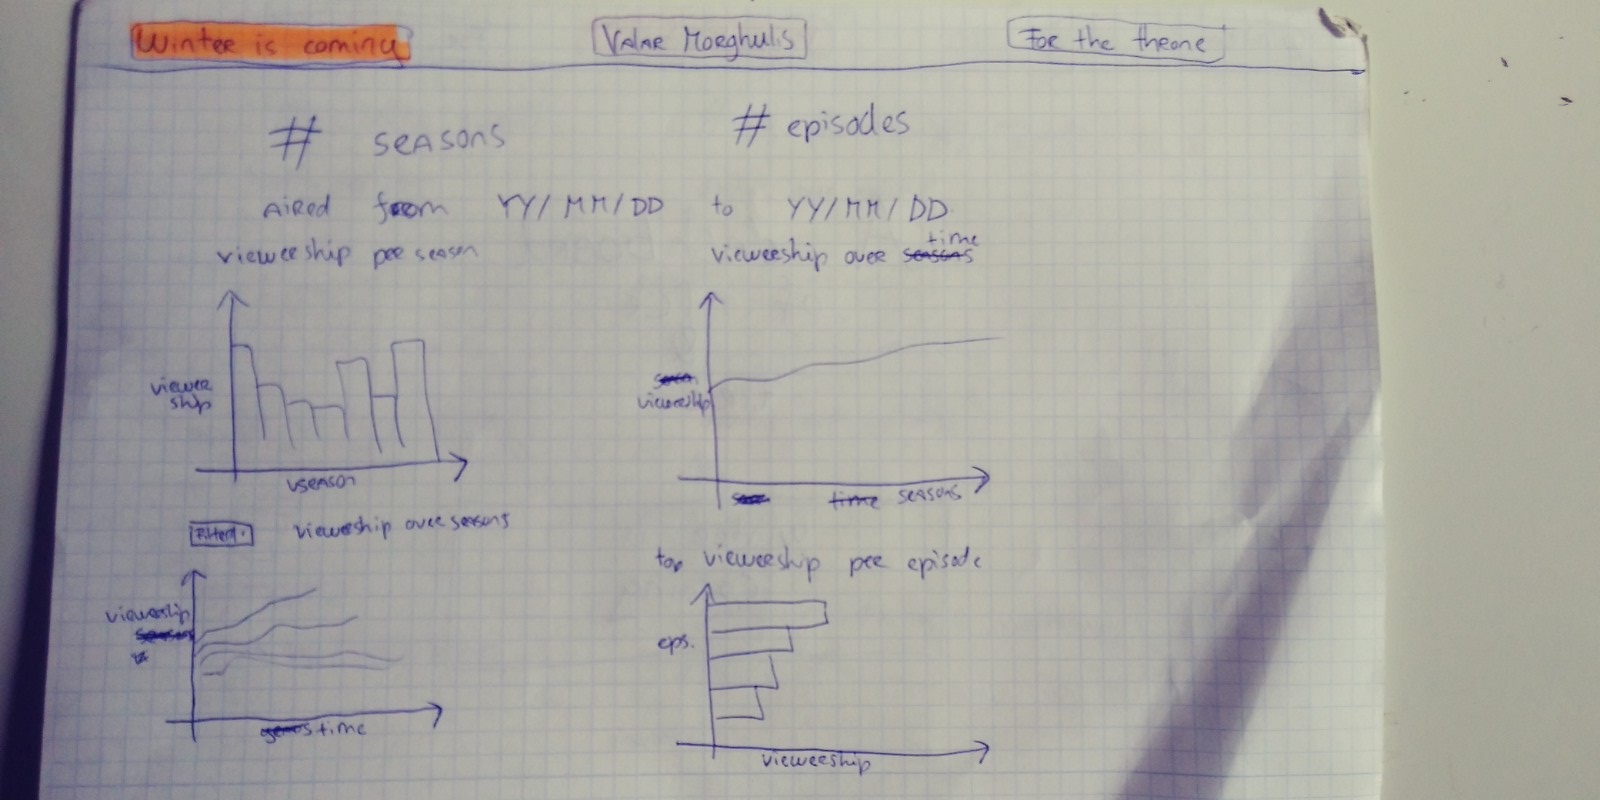 Winter is coming
Valar Morghulis
For the throne
# seasons
# episodes
Aired from YY/MM/DD to YY/MM/DD
viewership per season
viewership over time
viewer
ship
season
viewership
time seasons
Filter
viewership over seasons
viewership
time
top viewership per episode
eps.
viewership